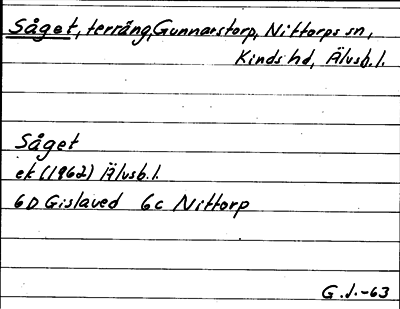 Såget, terräng, Gunnarstorp, Nittorps sn,
Kinds hd, Älvsb. l.
Såget
ek (1962) Älvsb. l.
6D Gislaved 6c Nittorp
G.J.-63